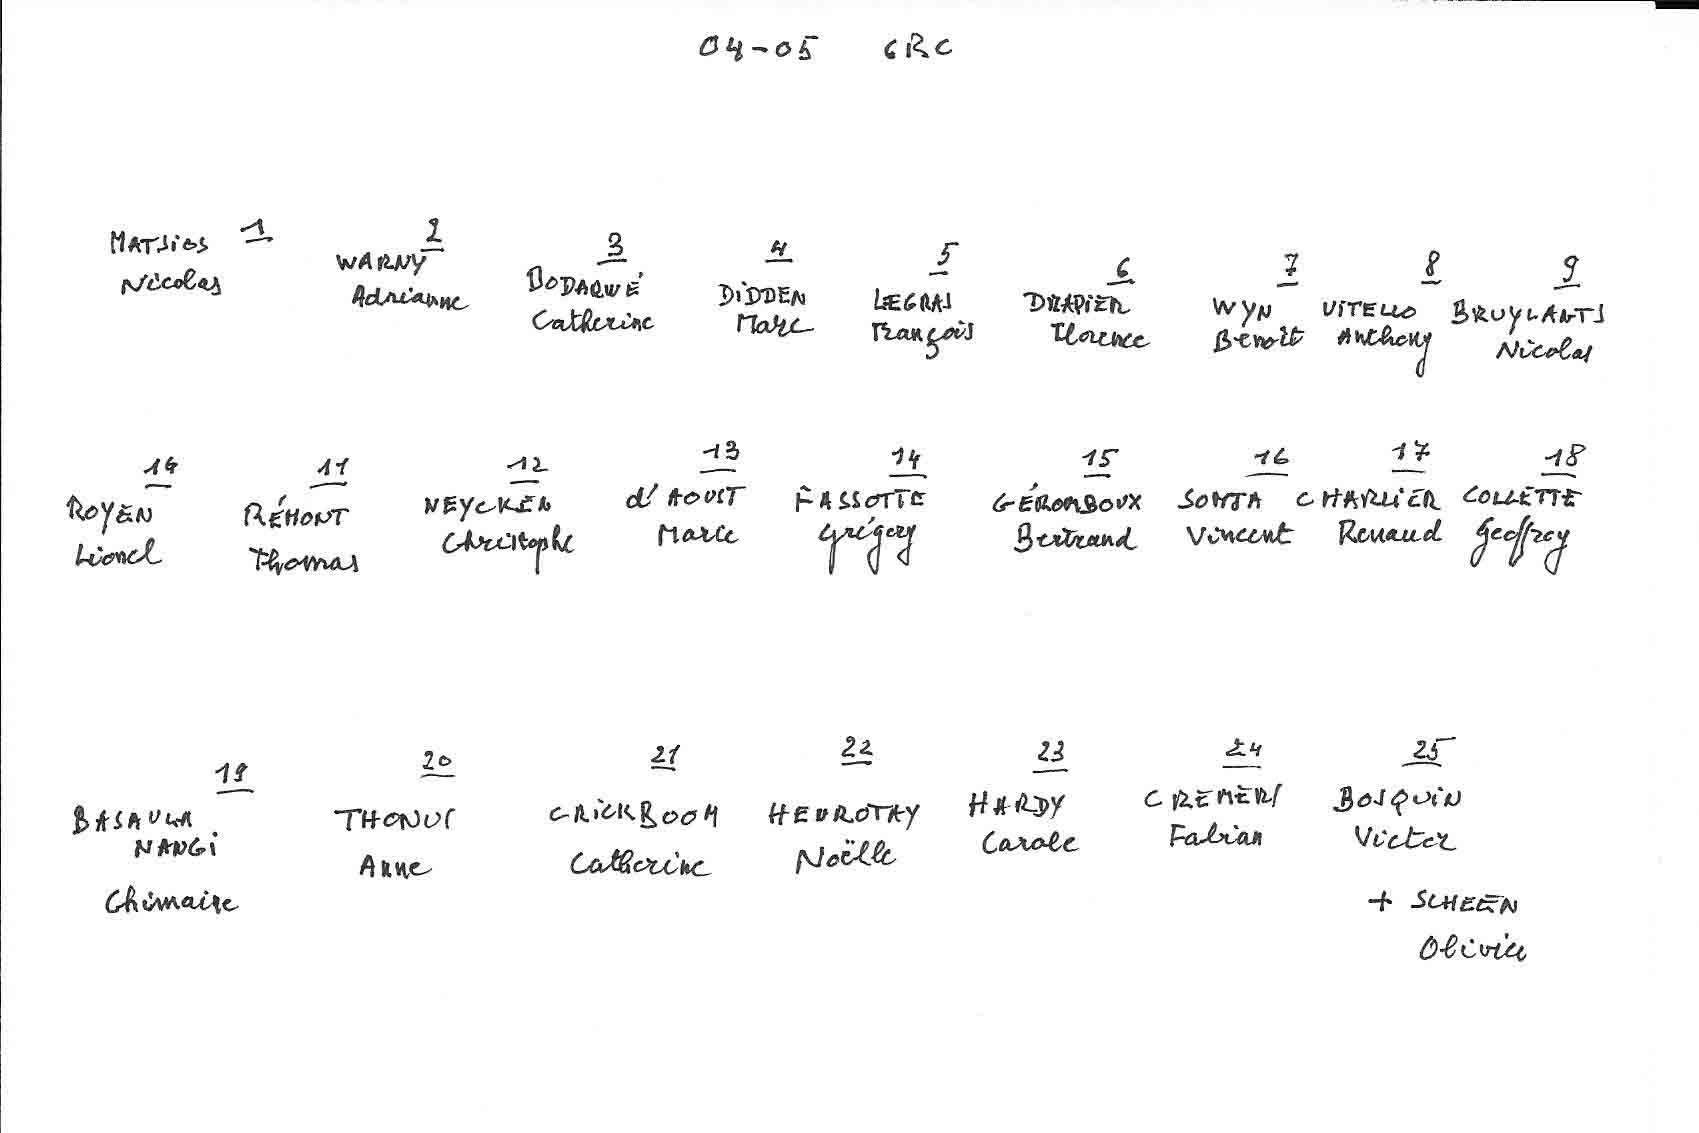 04-05 6RC
1 2 3 4 5 6 7 8 9
MATSIOS WARNY BODARWÉ DIDDEN LEGRAS DRAPIER WYN VITELLO BRUYLANTS
Nicolas Adrianne Catherine Marc François Florence Benoît Anthony Nicolas
10 11 12 13 14 15 16 17 18
ROYEN RÉMONT NEYCKEN d'AOUST FASSOTTE GÉROMBOUX SONTA CHARLIER COLLETTE
Lionel Thomas Christophe Marie Grégory Bertrand Vincent Renaud Geoffrey
19 20 21 22 23 24 25
BASAULA THONUS CRICKBOOM HEUROTAY HARDY CREMERS BOSQUIN
NANGI Anne Catherine Noëlle Carole Fabian Victor
Ghimaire + SCHEEN
Olivier